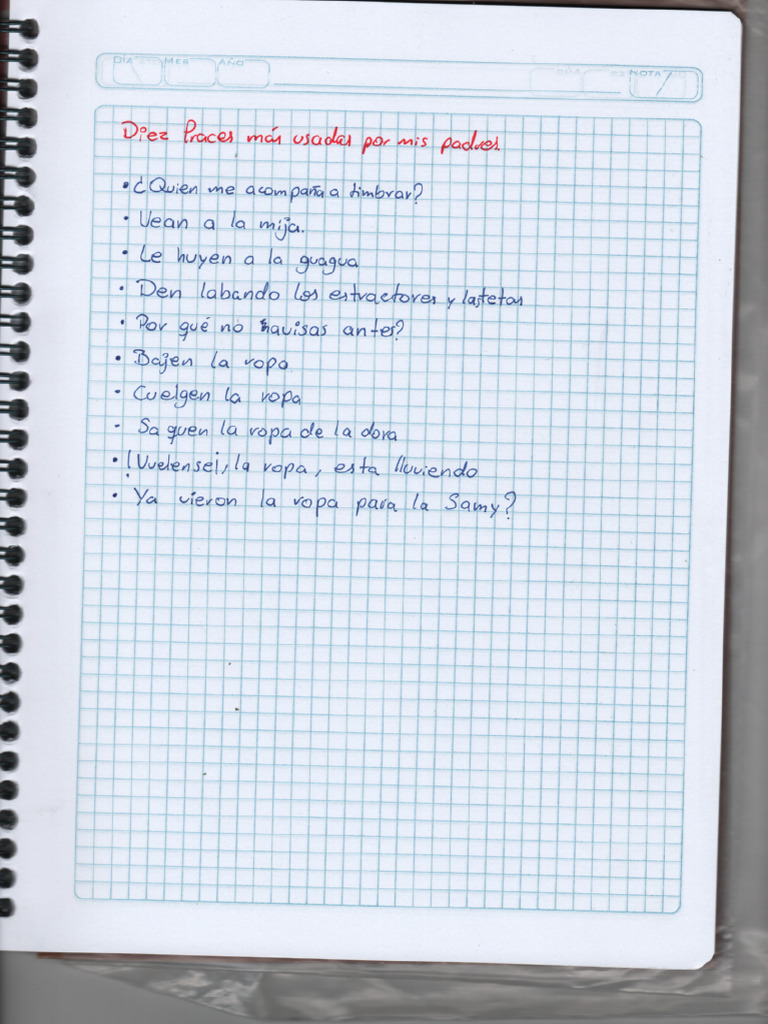 DÍA MES AÑO NOTA
Diez fraces más usadas por mis padres.
• ¿Quien me acompaña a timbrar?
• Vean a la mija.
• Le huyen a la guagua
• Den labando los estractores y las tetas
• Por qué no havisas antes?
• Bajen la ropa
• Cuelgen la ropa
- Saquen la ropa de la dora
• ¡Vuelensei, la ropa, esta lluviendo
• Ya vieron la ropa para la Samy?